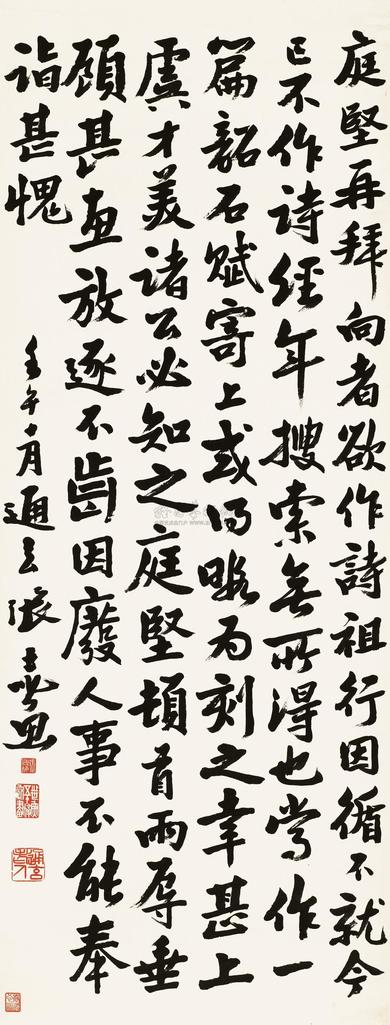 庭堅再拜向者欲作詩祖行因循不就今
已不作詩經年搜索無所得也嘗作一
篇韶石賦寄上或得暇為刻之幸甚上
虞才美諸公必知之庭堅頓首兩辱垂
顧甚惠放逐不齒因廢人事不能奉
詣甚愧
壬午十月通玄張